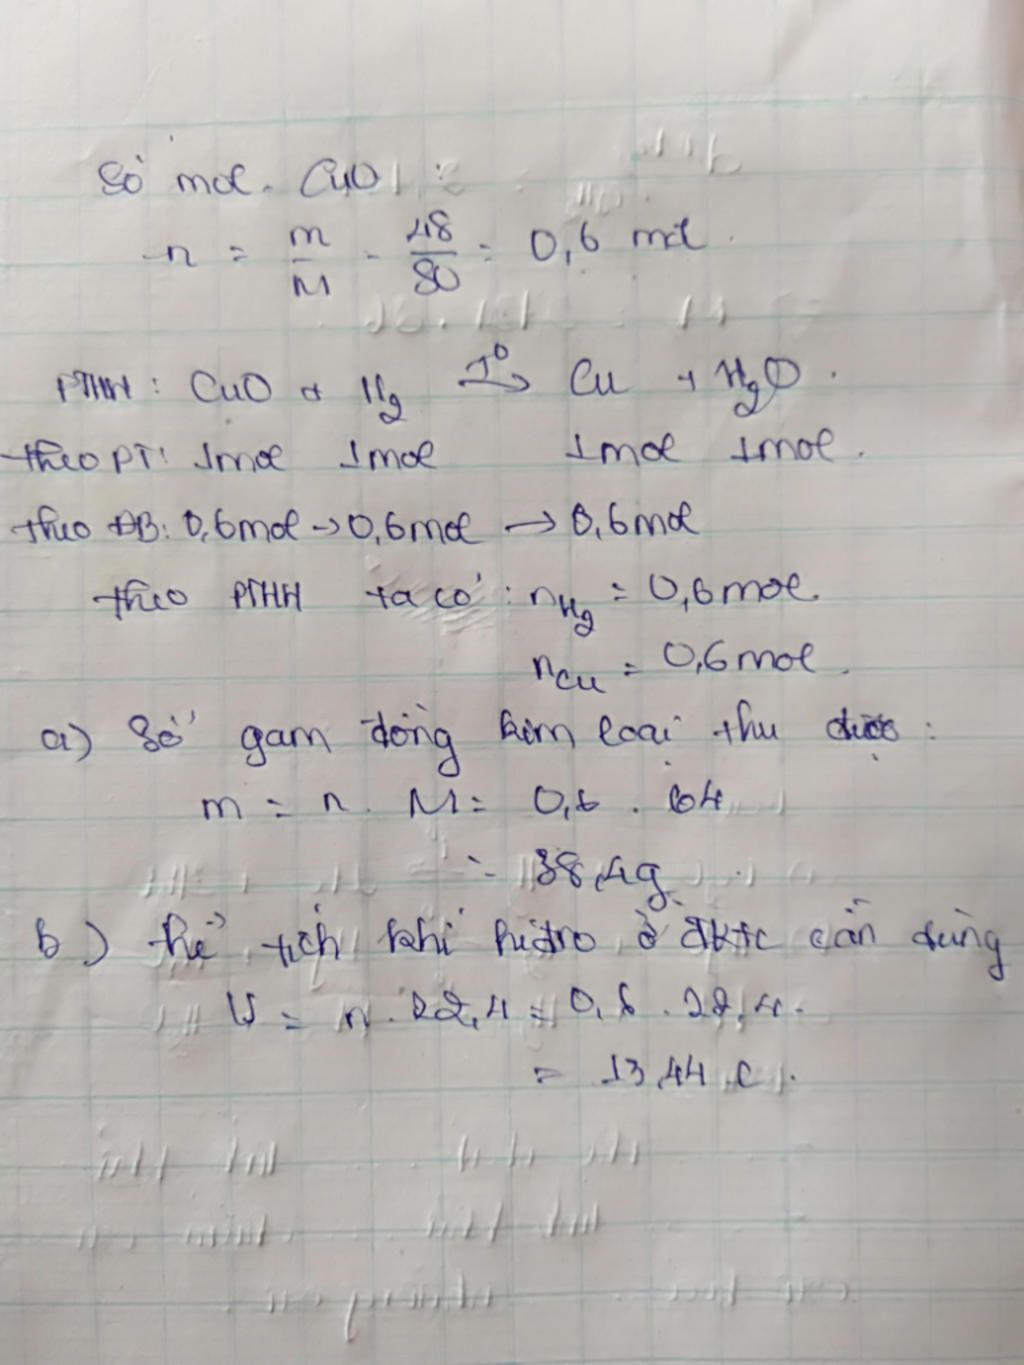 Số mol CuO :
n = m/M = 48/80 = 0,6 mol.
PTHH: CuO + H2 →(T⁰) Cu + H2O.
theo PT: 1mol 1mol 1mol 1mol.
theo ĐB: 0,6mol → 0,6mol → 0,6mol
theo PTHH ta có: nH2 = 0,6mol.
nCu = 0,6mol.
a) Số gam đồng kim loại thu được:
m = n. M = 0,6 . 64
= 38,4g.
b) thể tích khí hiđro ở đktc cần dùng
V = n . 22,4 = 0,6 . 22,4.
= 13,44 l.